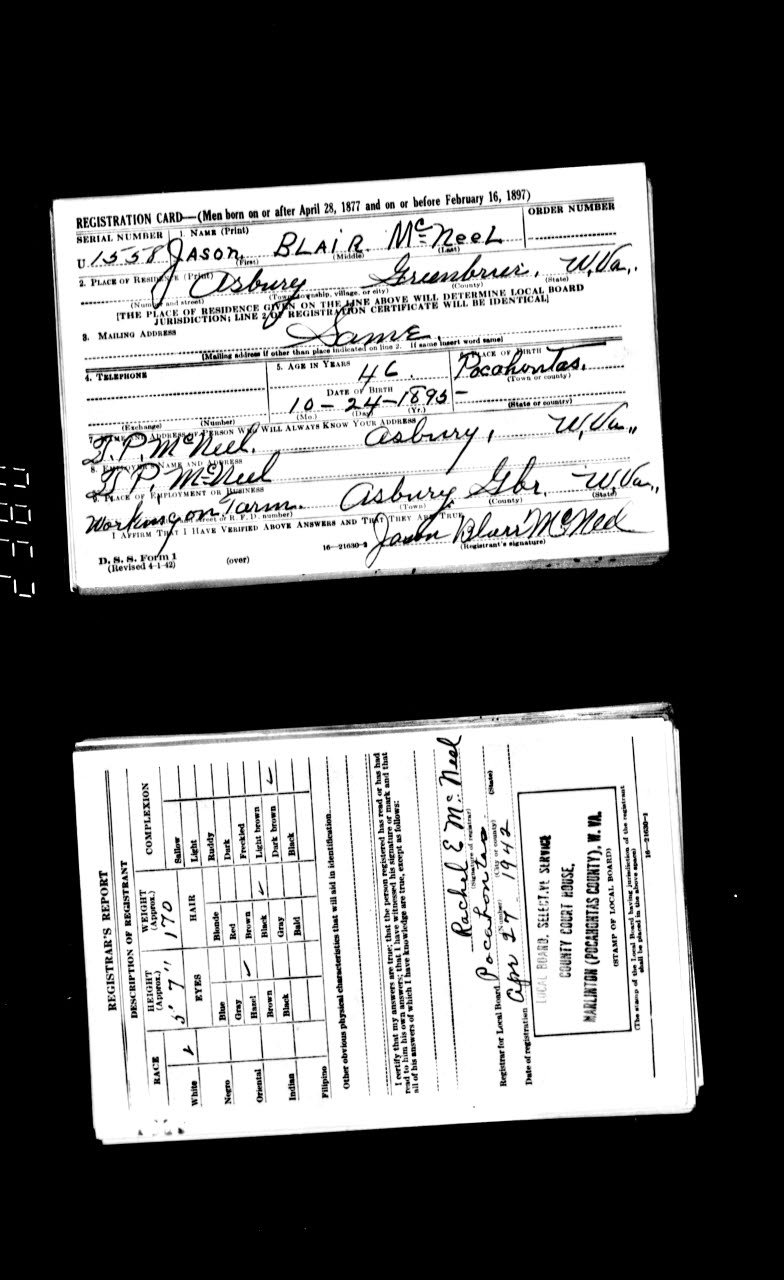 REGISTRATION CARD—(Men born on or after April 28, 1877 and on or before February 16, 1897)
SERIAL NUMBER 1. NAME (Print) ORDER NUMBER
U 1558 JASON BLAIR McNEEL
(First) (Middle) (Last)
2. PLACE OF RESIDENCE (Print)
Asbury Greenbrier, W.Va.
(Number and street) (Town, township, village, or city) (County) (State)
[THE PLACE OF RESIDENCE GIVEN ON THE LINE ABOVE WILL DETERMINE LOCAL BOARD
JURISDICTION; LINE 2 OF REGISTRATION CERTIFICATE WILL BE IDENTICAL]
3. MAILING ADDRESS
Same
[Mailing address if other than place indicated on line 2. If same insert word same]
4. TELEPHONE 5. AGE IN YEARS PLACE OF BIRTH
46. Pocahontas.
(Town or county)
DATE OF BIRTH
10-24-1895-
(Exchange) (Number) (Mo.) (Day) (Yr.) (State or country)
7. NAME AND ADDRESS OF PERSON WHO WILL ALWAYS KNOW YOUR ADDRESS
McNeel. Asbury, W.Va.,
8. EMPLOYER'S NAME AND ADDRESS
McNeel
9. PLACE OF EMPLOYMENT OR BUSINESS
Working on Farm. Asbury Gbr. W.Va.,
(Number and street or R. F. D. number) (Town) (County) (State)
I AFFIRM THAT I HAVE VERIFIED ABOVE ANSWERS AND THAT THEY ARE TRUE.
Jason Blair McNeel
D. S. S. Form 1
(Revised 4-1-42) (over) 16—21630-2 (Registrant's signature)
REGISTRAR'S REPORT
DESCRIPTION OF REGISTRANT
RACE HEIGHT (Approx.) WEIGHT (Approx.) COMPLEXION
5' 7" 170 Sallow
White EYES HAIR Light
Blue Blonde Ruddy
Negro Gray Red Dark
Hazel Brown Freckled
Oriental Brown Black Light brown
Indian Black Gray Dark brown
Bald Black
Filipino
Other obvious physical characteristics that will aid in identification
I certify that my answers are true; that the person registered has read or has had
read to him his own answers; that I have witnessed his signature or mark and that
all of his answers of which I have knowledge are true, except as follows:
Rachel E McNeel
(Signature of registrar)
Registrar for Local Board Pocahontas
(Number) (City or county) (State)
Date of registration Apr 27 1942
LOCAL BOARD, SELECTIVE SERVICE
COUNTY COURT HOUSE,
MARLINTON (POCAHONTAS COUNTY), W. VA.
(STAMP OF LOCAL BOARD)
(The stamp of the Local Board having jurisdiction of the registrant
shall be placed in the above space)
16—21630-1